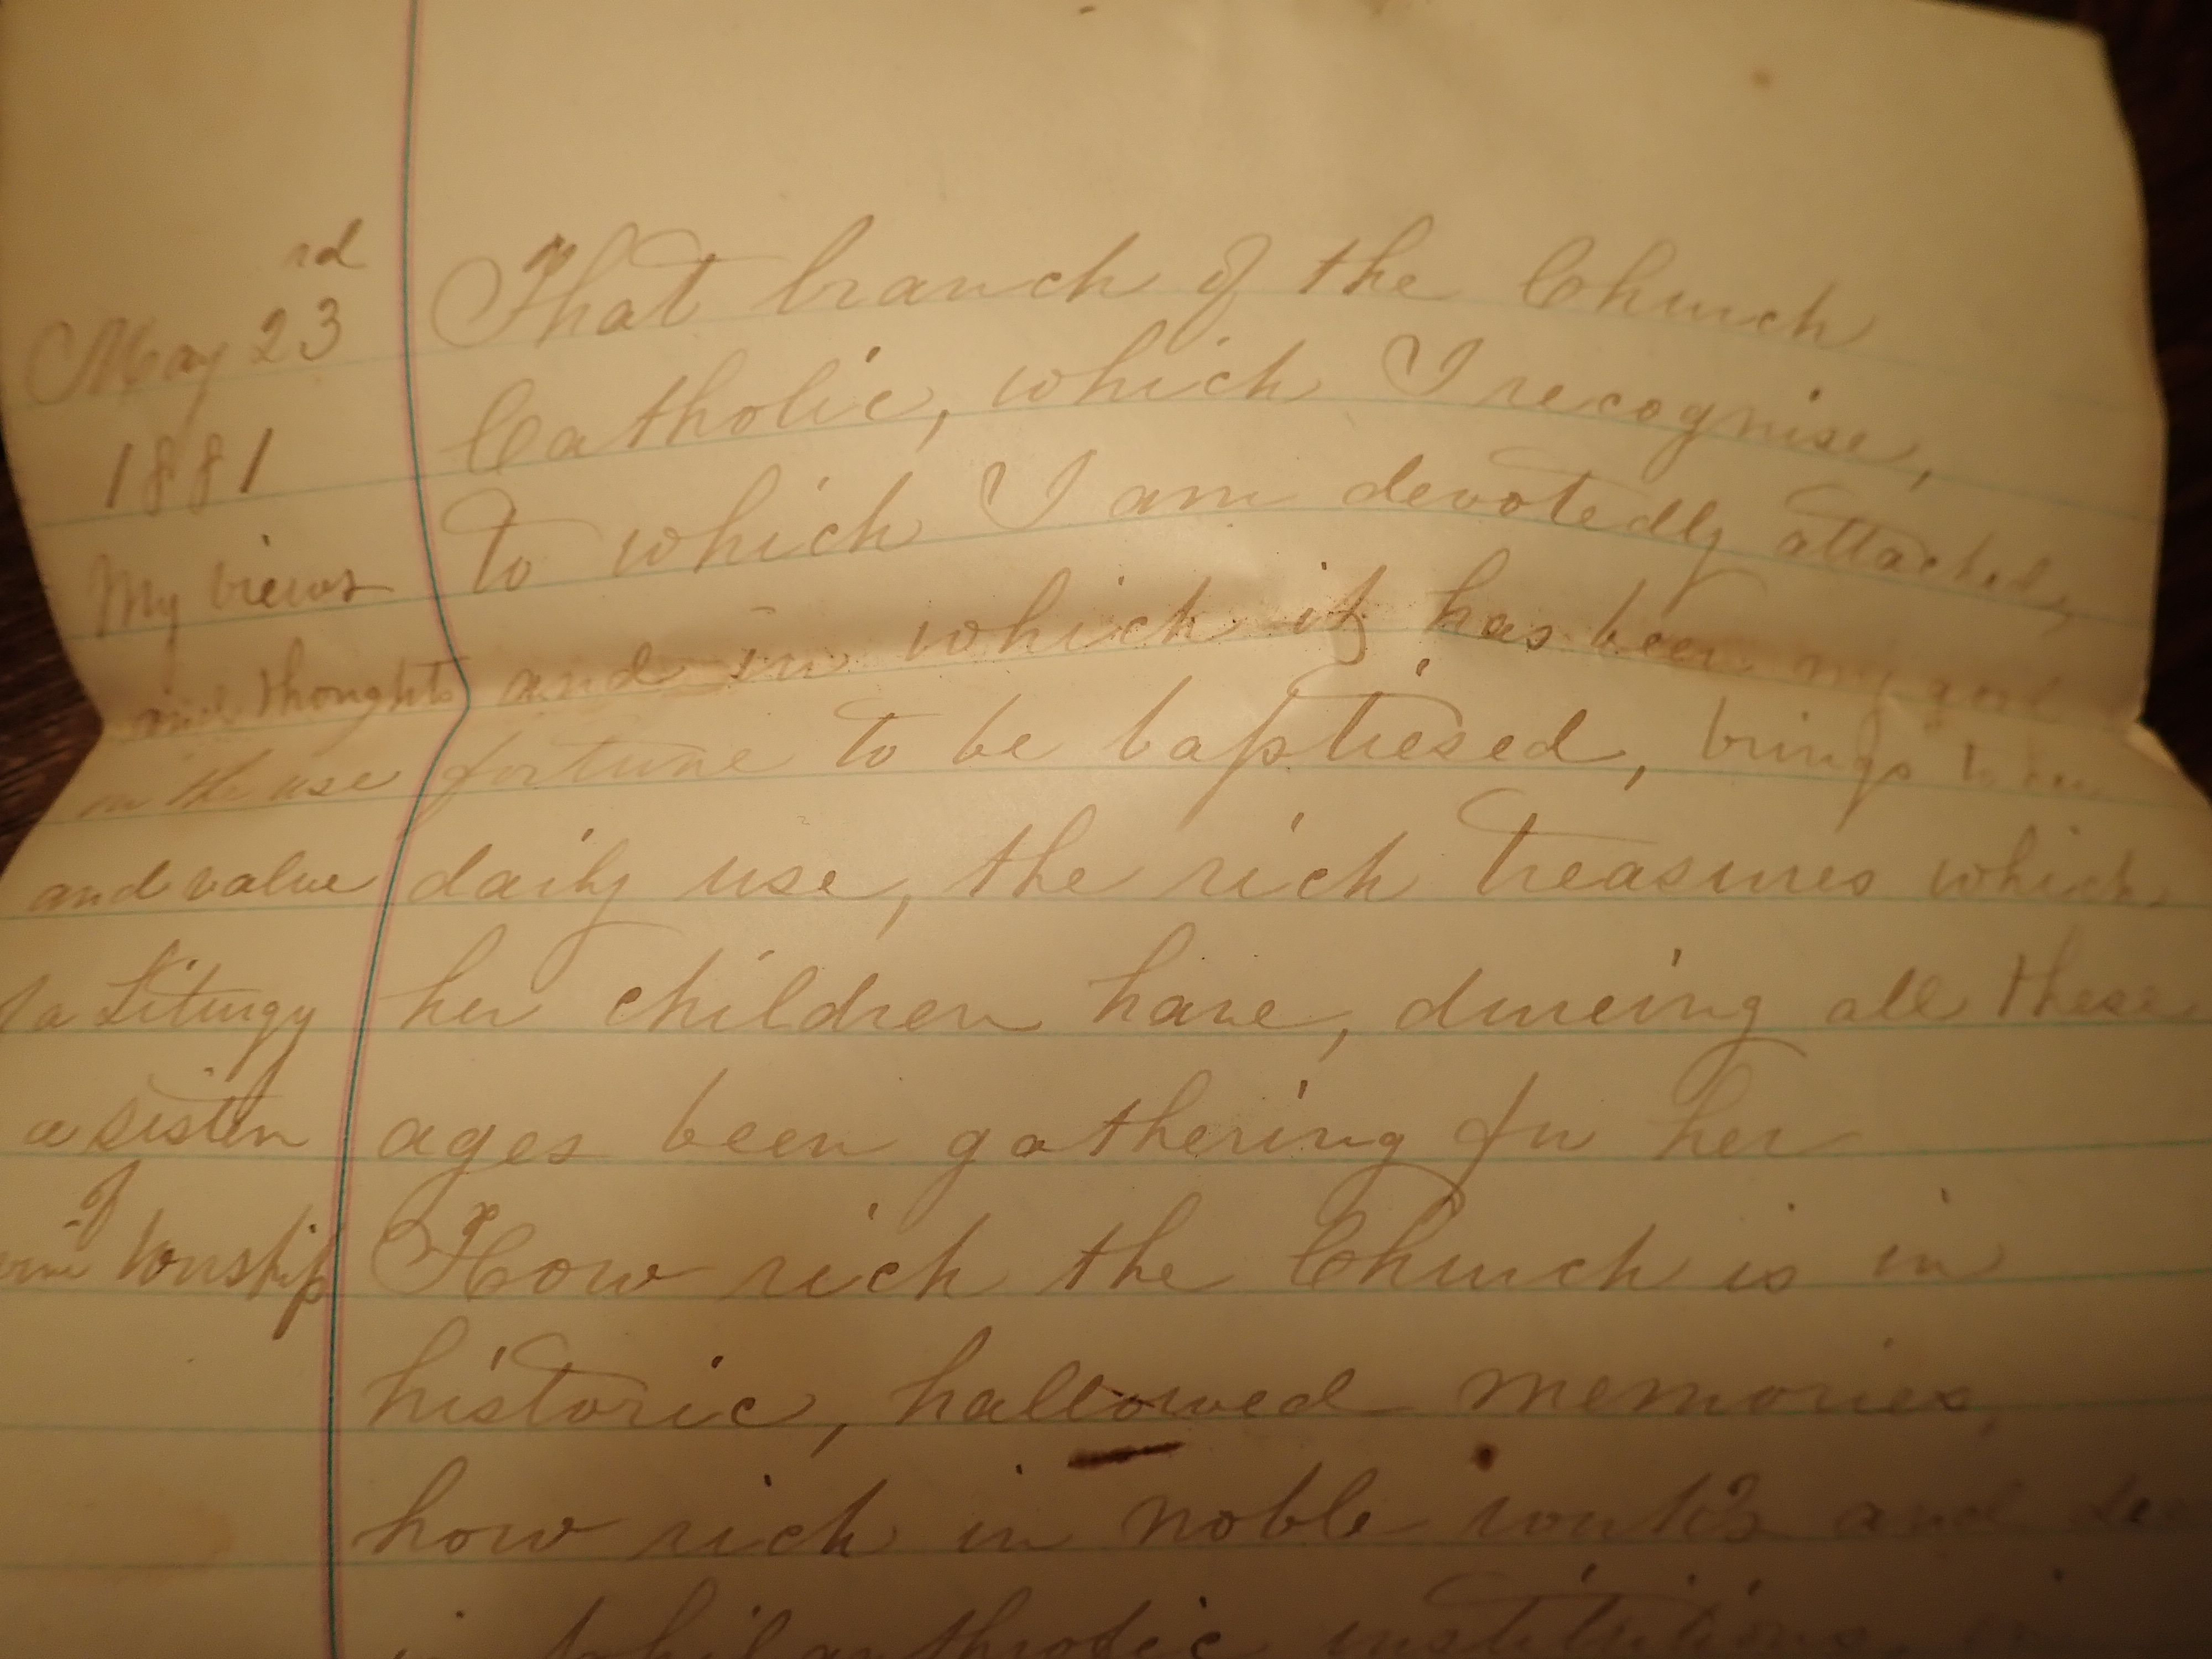 May 23rd
1881
My views
and thoughts
in the use
and value
a Liturgy
a sistem
of
Worship
That branch of the Church
Catholic, which I recognise,
to which I am devotedly attached,
and in which it has been my good
fortune to be baptiesed, brings to her
daily use, the rich treasures which
her children have, dureing all these
ages been gathering for her
How rich the Church is in
historic, hallowed memories,
how rich in noble works and
in philanthropic institutions, in